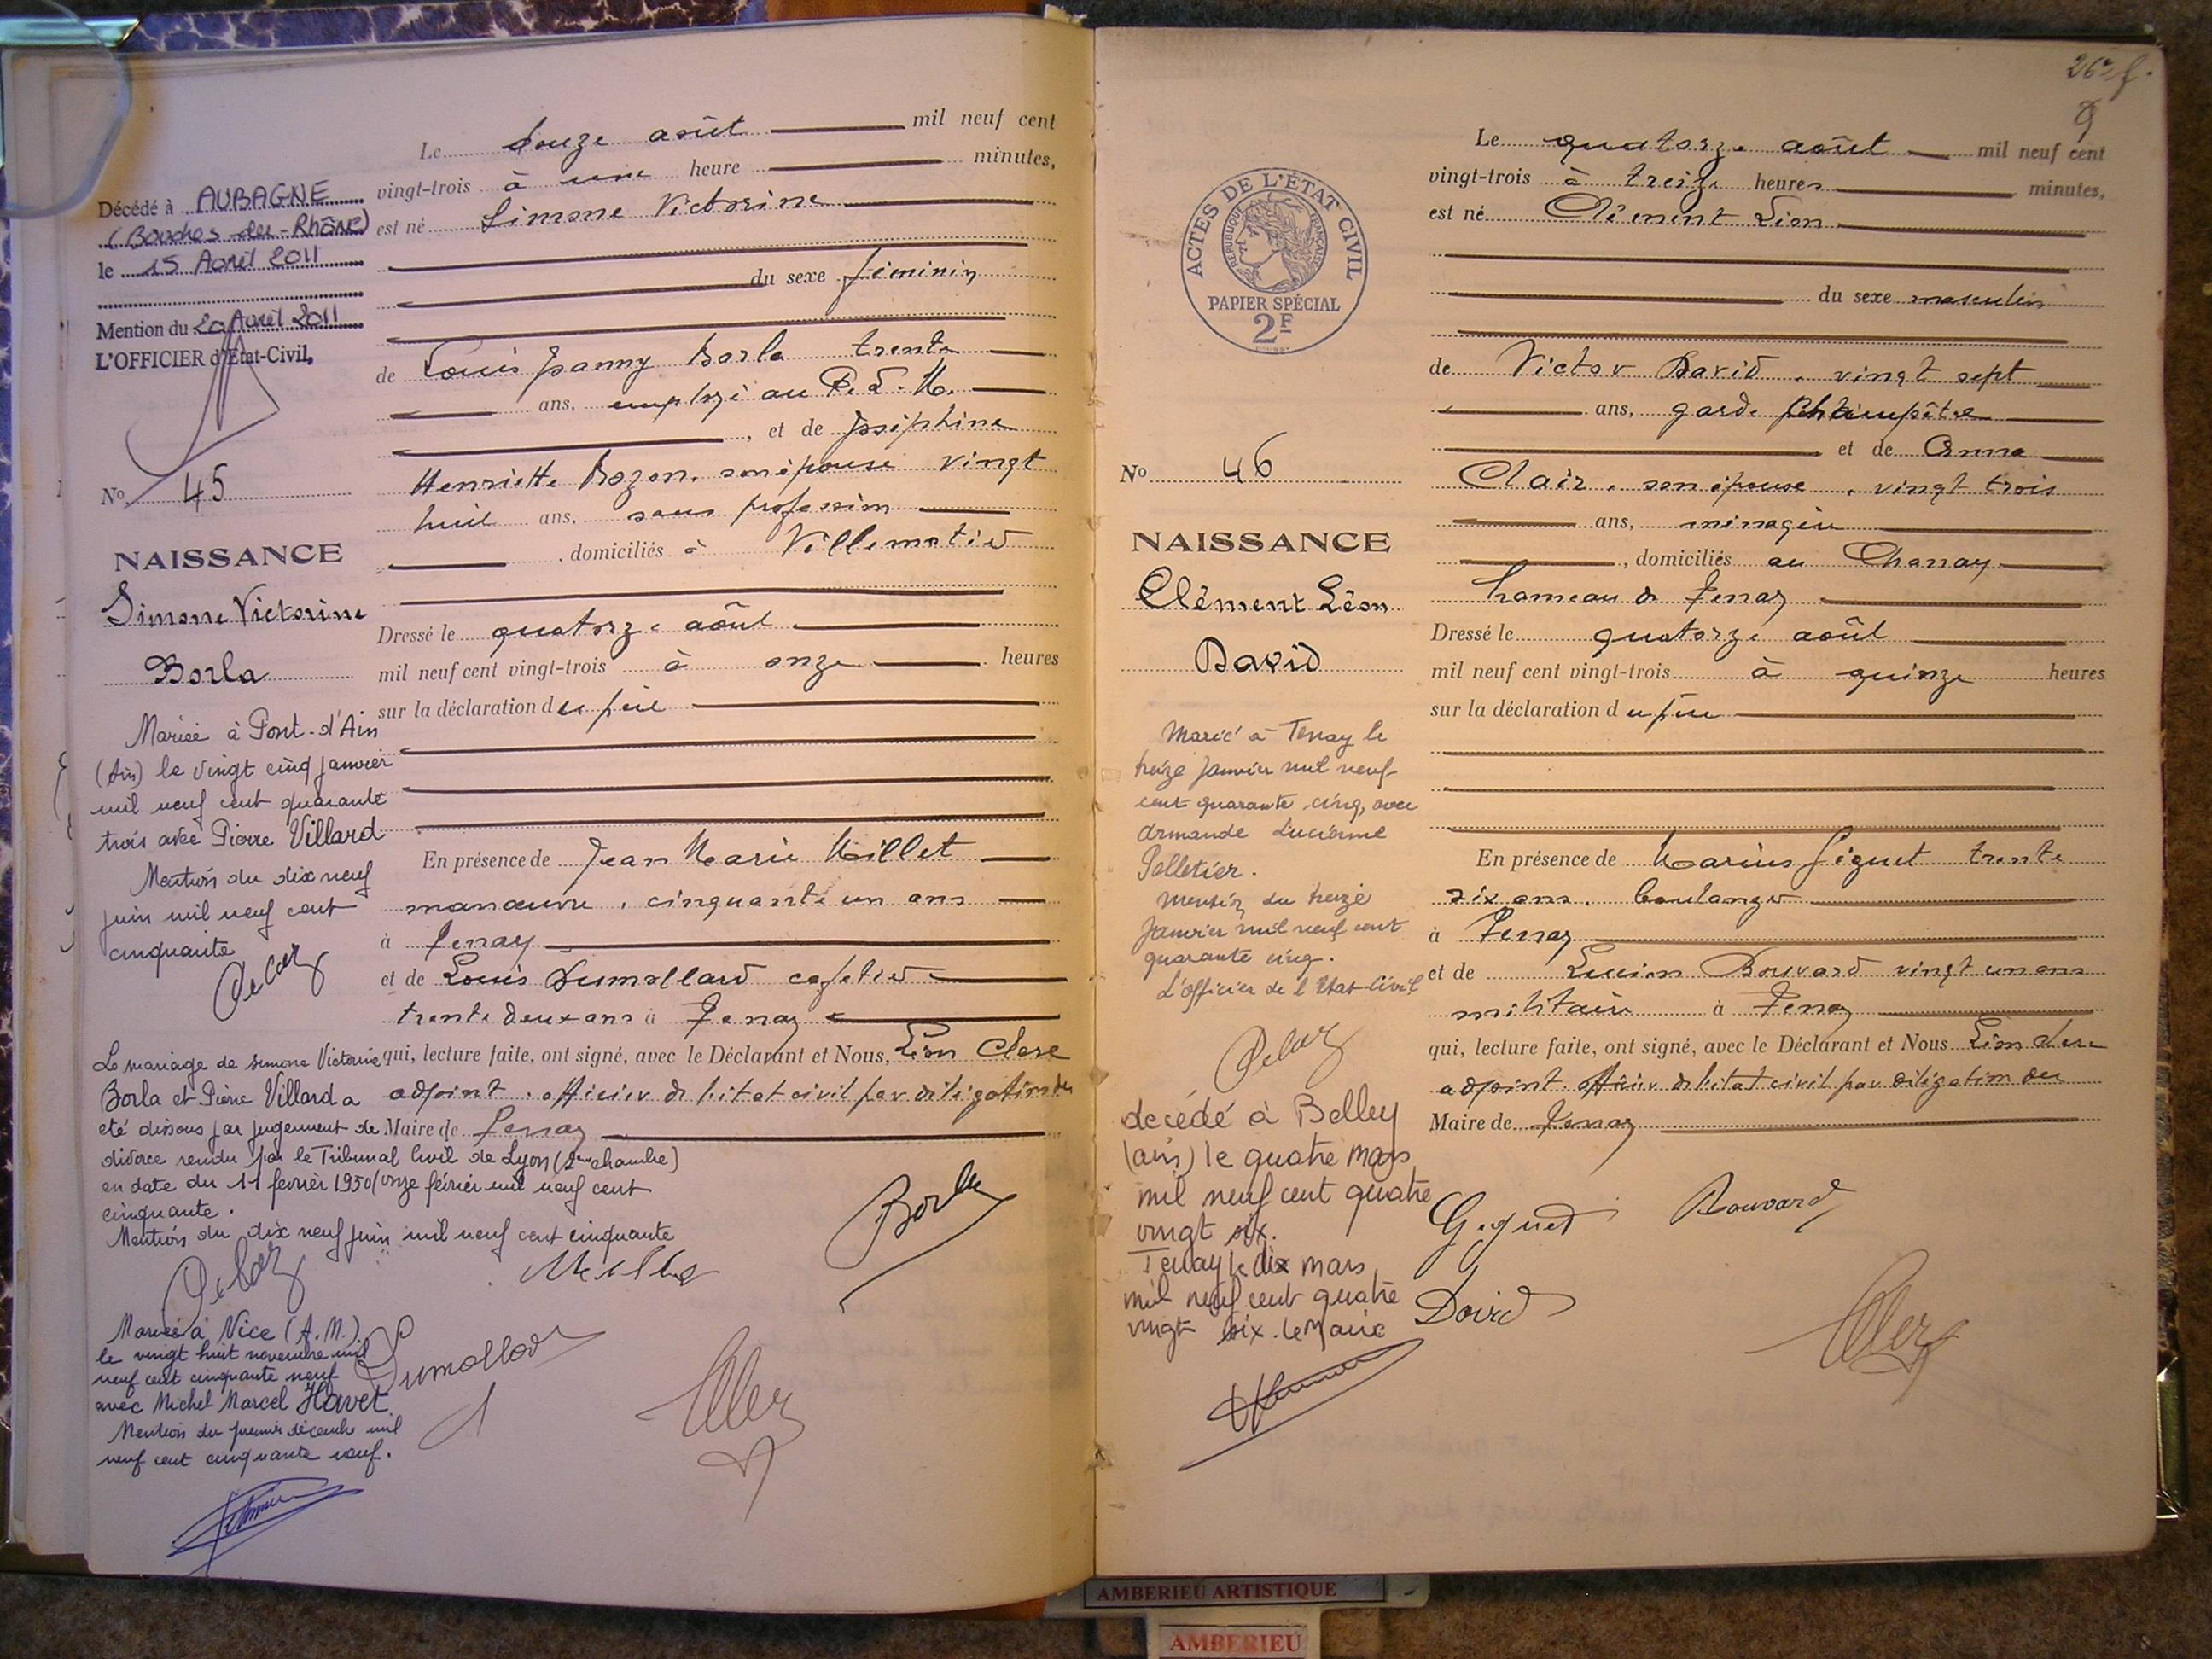 Le douze août mil neuf cent
vingt-trois à une heure minutes,
est né Simone Victorine
du sexe féminin
de Louis Joanny Borla trente
ans, employé au P. L. M.
, et de Joséphine
Henriette Bozon, son épouse vingt
huit ans, sans profession
, domiciliés à Villemotier
Dressé le quatorze août
mil neuf cent vingt-trois à onze heures
sur la déclaration du père
En présence de Jean Marie Millet
manœuvre, cinquante un ans
à Tenay
et de Louis Dumollard cafetier
trente deux ans à Tenay
qui, lecture faite, ont signé, avec le Déclarant et Nous, Léon Clerc
adjoint, officier de l'état civil par délégation du
Maire de Tenay
Borla
Millet
Dumollard
Décédé à AUBAGNE
(Bouches-du-Rhône)
le 15 Avril 2011
Mention du 20 Avril 2011
L'OFFICIER d'État-Civil,
No 45
NAISSANCE
Simone Victorine
Borla
Mariée à Pont-d'Ain
(Ain) le vingt cinq janvier
mil neuf cent quarante
trois avec Pierre Villard
Mention du dix neuf
juin mil neuf cent
cinquante
Le mariage de Simone Victorine
Borla et Pierre Villard a
été dissous par jugement de
divorce rendu par le Tribunal Civil de Lyon (2eme chambre)
en date du 11 février 1950 (onze février mil neuf cent
cinquante.
Mention du dix neuf juin mil neuf cent cinquante
Mariée à Nice (A.M.)
le vingt huit novembre mil
neuf cent cinquante neuf
avec Michel Marcel Havet
Mention du premier décembre mil
neuf cent cinquante neuf.
26e f.
9
Le quatorze août mil neuf cent
vingt-trois à treize heures minutes,
est né Clément Léon
du sexe masculin
de Victor David, vingt sept
ans, garde champêtre
et de Anna
Clair, son épouse, vingt trois
ans, ménagère
, domiciliés au Chanay
hameau de Tenay
Dressé le quatorze août
mil neuf cent vingt-trois à quinze heures
sur la déclaration du père
En présence de Marius Giguet trente
six ans, boulanger
à Tenay
et de Lucien Bouvard vingt un ans
militaire à Tenay
qui, lecture faite, ont signé, avec le Déclarant et Nous Léon Clerc
adjoint officier de l'état civil par délégation du
Maire de Tenay
Giguet Bouvard
David
ACTES DE L'ÉTAT CIVIL
RÉPUBLIQUE FRANÇAISE
PAPIER SPÉCIAL
2F
No 46
NAISSANCE
Clément Léon
David
Marié à Tenay le
treize janvier mil neuf
cent quarante cinq, avec
Armande Lucienne
Pelletier.
Mention du treize
janvier mil neuf cent
quarante cinq.
L'officier de l'Etat-Civil
decédé à Belley
(ain) le quatre mars
mil neuf cent quatre
vingt six.
Tenay le dix mars
mil neuf cent quatre
vingt six. le Maire
AMBERIEU ARTISTIQUE
AMBERIEU